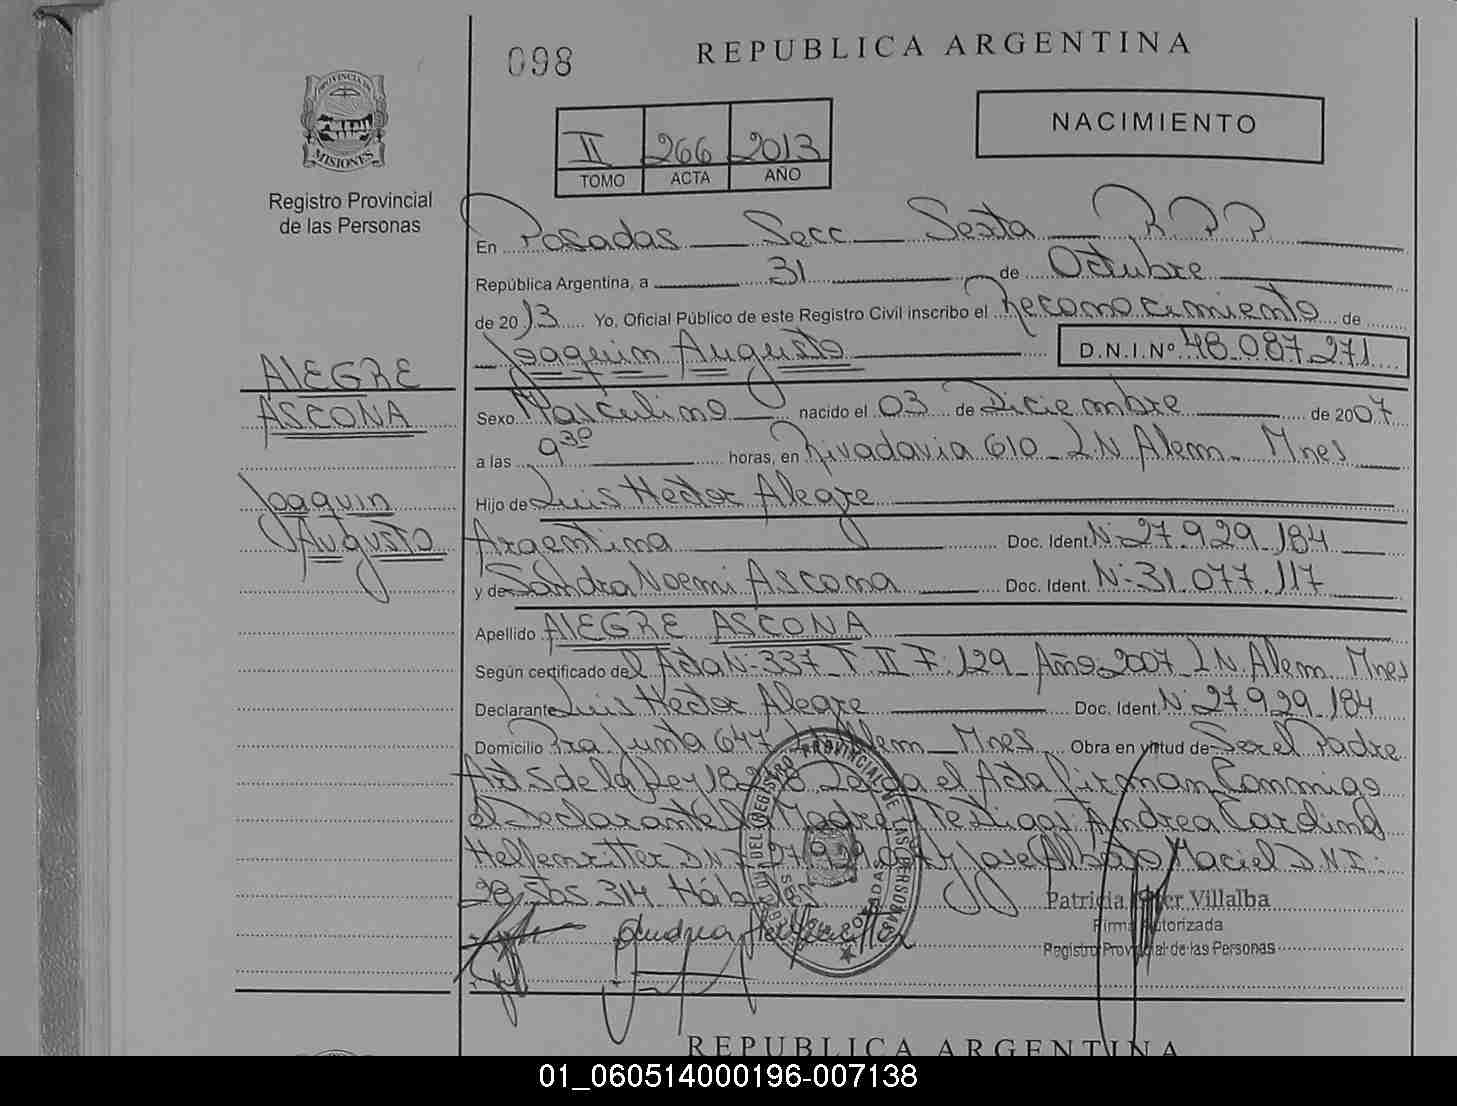 098
REPUBLICA ARGENTINA
PROVINCIA DE
MISIONES
Registro Provincial
de las Personas
II 266 2013
TOMO ACTA AÑO
NACIMIENTO
En Posadas Secc Sexta R.P.P.
República Argentina, a 31 de Octubre
de 2013 Yo, Oficial Público de este Registro Civil inscribo el Reconocimiento de
Joaquim Augusto D.N.I. Nº 48.087.271
ALEGRE
ASCONA
Joaquin
Augusto
Sexo Masculino nacido el 03 de Diciembre de 2007
a las 9 30 horas, en Rivadavia 610 L.N. Alem - Mnes
Hijo de Luis Hector Alegre
Argentina Doc. Ident. N: 27.929.184
y de Sandra Noemi Ascona Doc. Ident. N: 31.077.117
Apellido ALEGRE ASCONA
Según certificado del Acta N: 337 T: II F: 129 Año 2007 L.N. Alem Mnes
Declarante Luis Hector Alegre Doc. Ident. N: 27.929.184
Domicilio Pra Junta 647 L.N. Alem - Mnes Obra en virtud de Ser el Padre
Art 5 de la Ley 18.248 Leida el Acta Firman Conmigo
el Declarante la Madre y Testigos: Andrea Carolina
Hellenritter D.N.I. y Jose Alberto Maciel D.N.I:
28.505.314 Hábiles
Patricia Villalba
Firma Autorizada
Registro Provincial de las Personas
REGISTRO PROVINCIAL DE LAS PERSONAS
POSADAS
REPUBLICA ARGENTINA
01_060514000196-007138